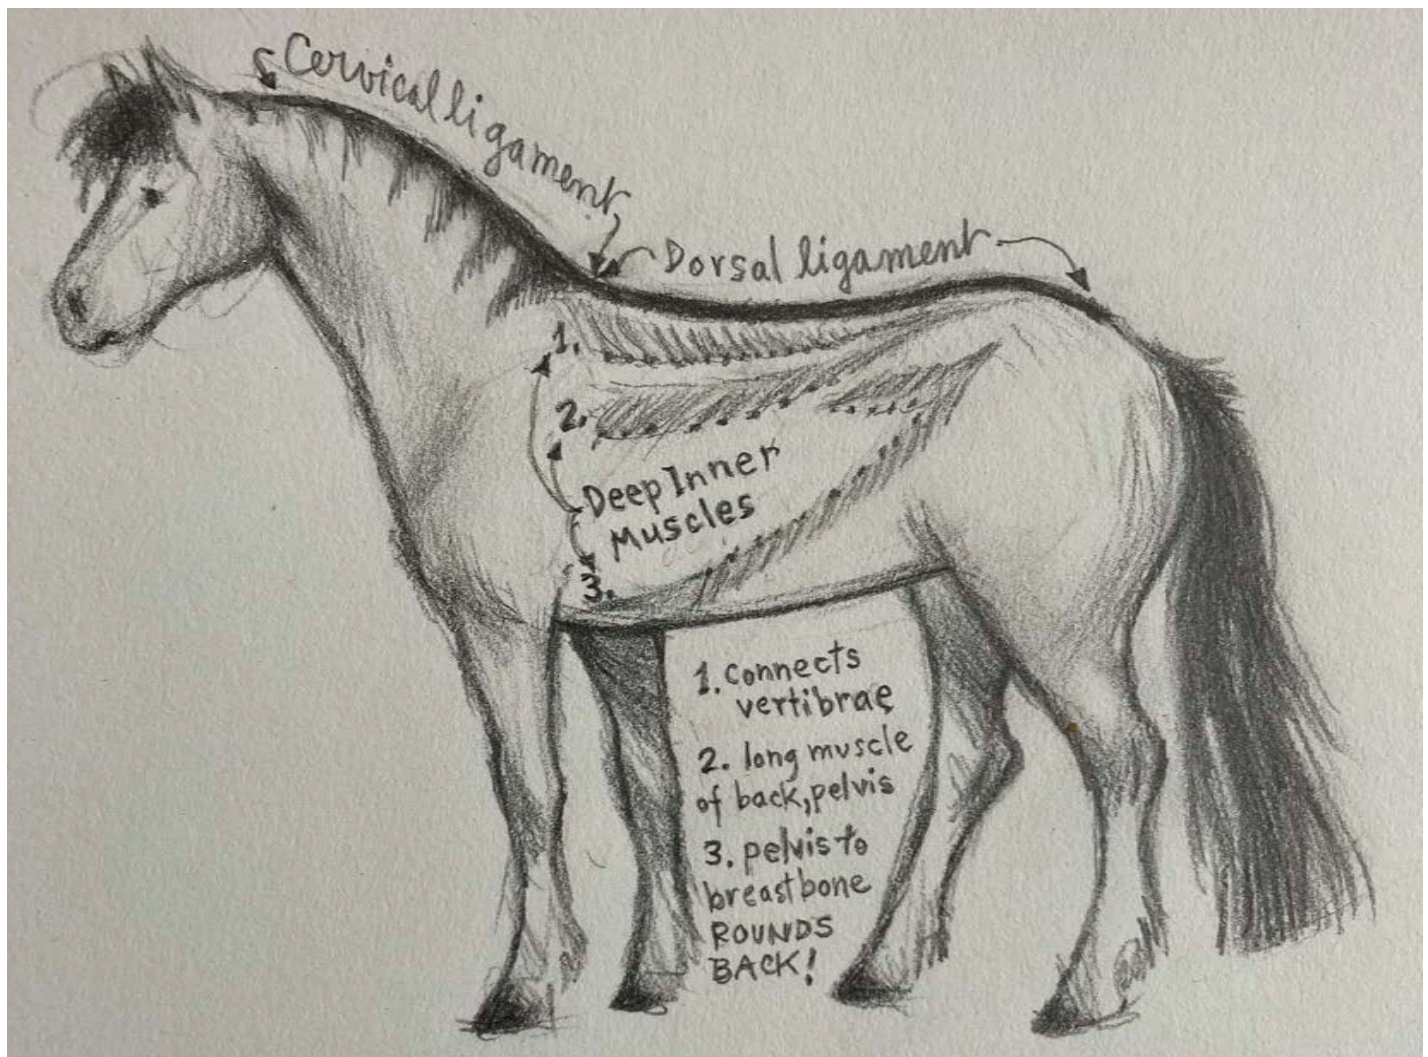 Cervical ligament
Dorsal ligament
1.
2.
Deep Inner
Muscles
3.
1. connects
vertibrae
2. long muscle
of back, pelvis
3. pelvis to
breastbone
ROUNDS
BACK!